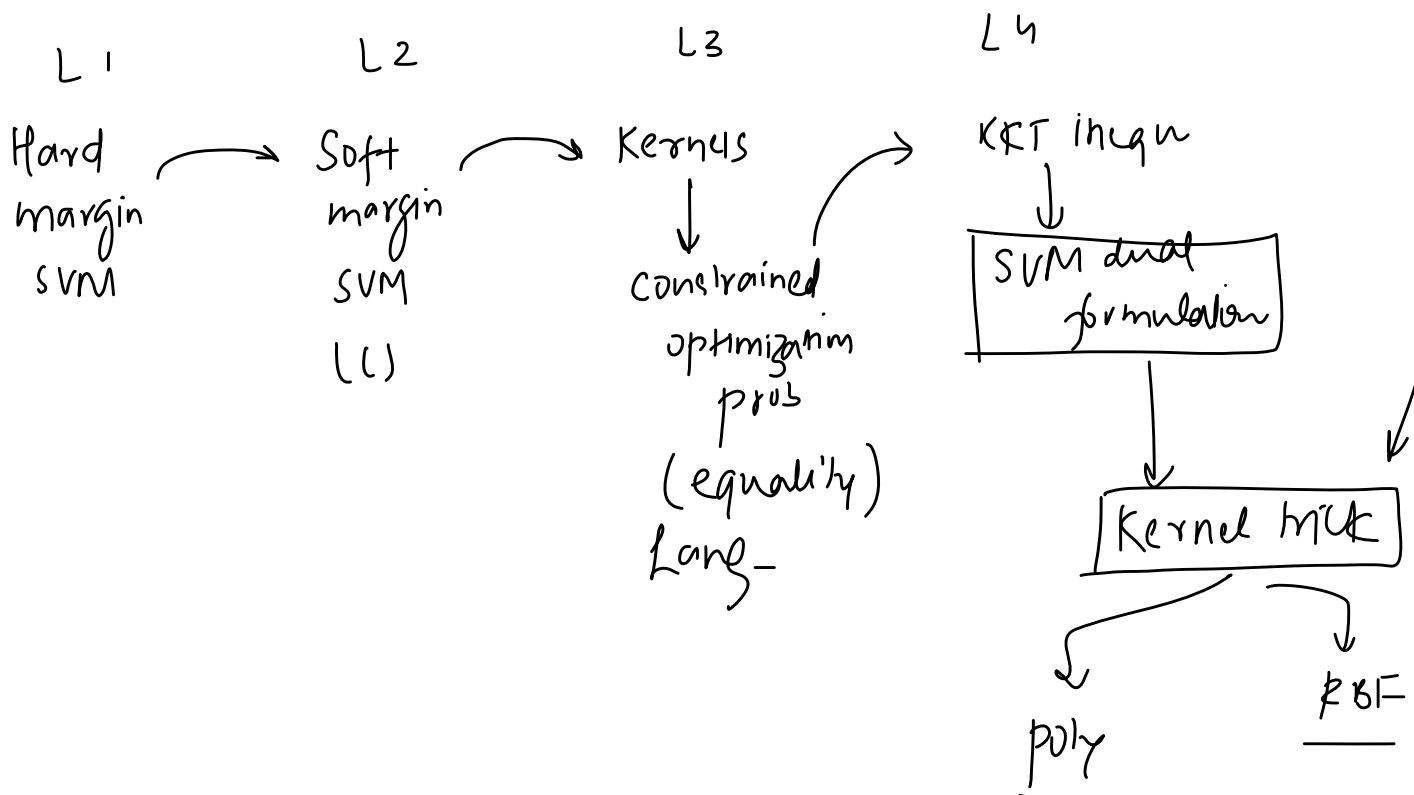 L1
Hard
margin
SVM
L2
Soft
margin
SVM
L3
Kernels
constrained
optimization
prob
(equality)
Lang_
L4
KKT inequ
SVM dual
formulation
Kernel trick
poly
RBF